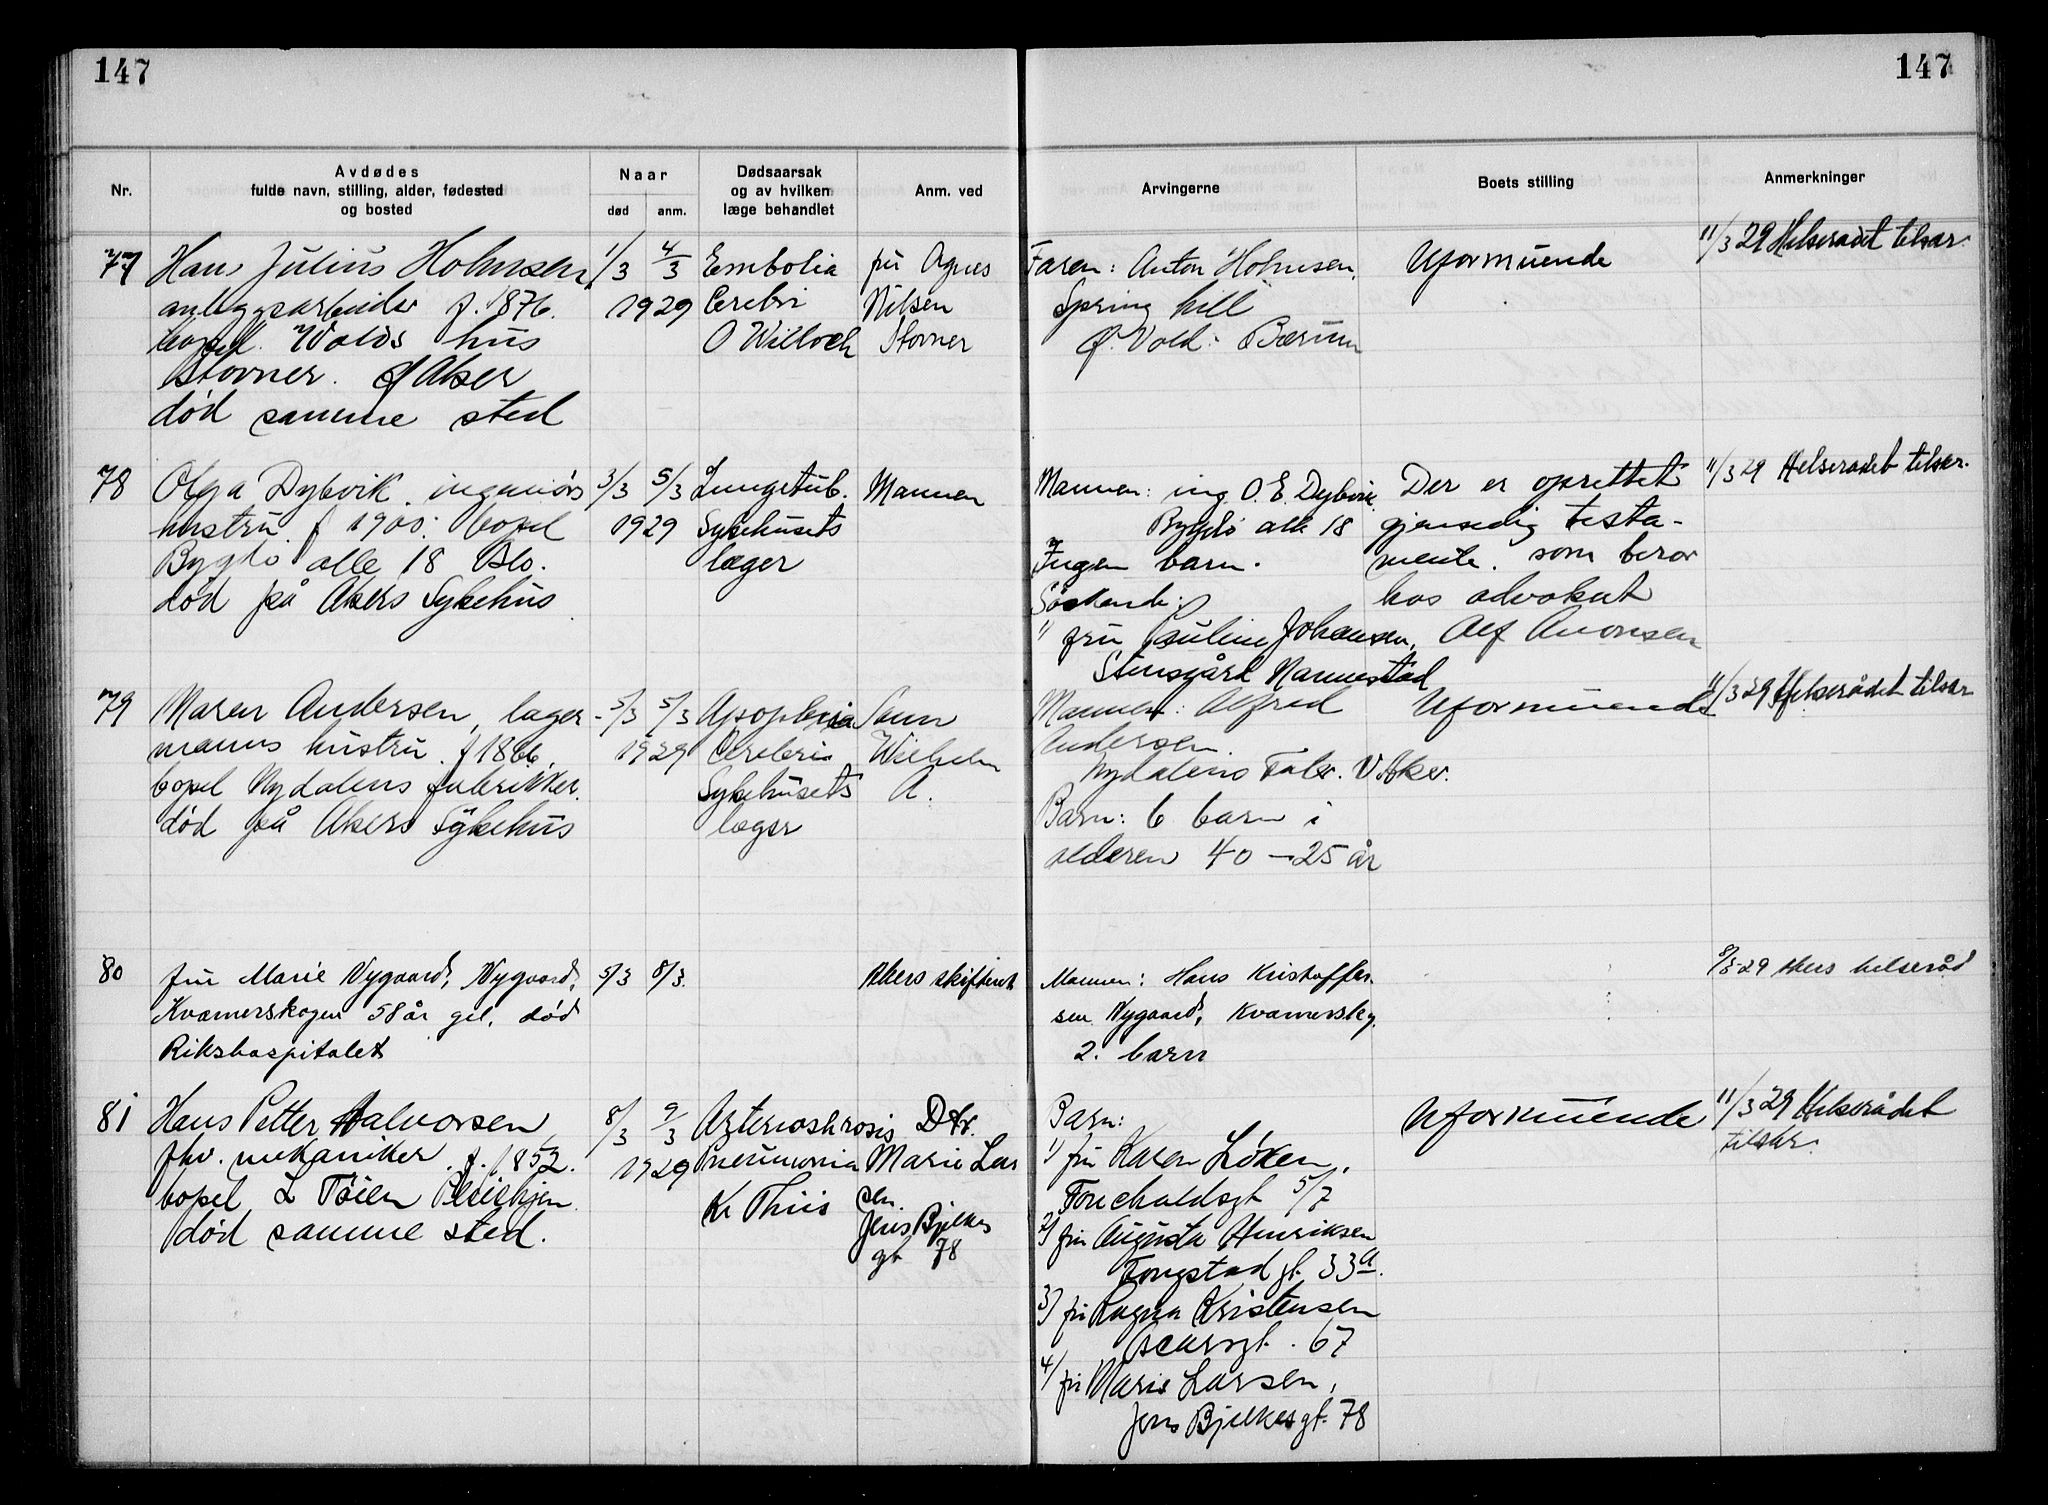 147
147
Nr.
Avdødes
fulde navn, stilling, alder, fødested
og bosted
Naar
død
anm.
Dødsaarsak
og av hvilken
læge behandlet
Anm. ved
Arvingerne
Boets stilling
Anmerkninger
77
Hans Julius Holmsen
anleggsarbeider f. 1876.
bopel. Volds hus
Stovner. Aker
død samme sted
1/3 4/3
1929
Embolia
Cerebri
O Willoch
fru Agnes
Nilsen
Stovner
Faren: Anton Holmsen.
Spring hill
Vold. Bærum
Uformuende
11/3 29 Helserådet tilskr.
78
Olga Dybvik. ingeniørs
hustru. f 1900. bopel
Bygdø alle 18 Oslo.
død på Akers Sykehus
3/3 5/3
1929
Lungetub.
Sykehusets
læger
Mannen
Mannen: ing. O. E. Dybvik.
Bygdø alle 18
Ingen barn.
Søskende:
1) fru Pauline Johansen,
Stensgård Nannestad
Der er oprettet
gjensidig testa-
mente. som beror
hos advokat
Alf Aronsen
11/3 29 Helserådet tilskr.
79
Maren Andersen, lager-
manns hustru. f 1866.
bopel Nydalens fabrikker.
død på Akers Sykehus
3/3 5/3
1929
Apoplexia
Cerebris
Sykehusets
læger
Sønn
Wilhelm
A.
Mannen: Alfred
Andersen.
Nydalens Fabr. V. Aker.
Barn: 6 barn i
alderen 40 - 25 år
Uformuende
11/3 29 Helserådet tilskr
80
fru Marie Nygaard, Nygaard,
Kværnerskogen 58 år gl. død
Rikshospitalet
5/3 8/3.
Akers skifterett
Mannen: Hans Kristoffer-
sen Nygaard, Kværnerskg.
2. barn
8/3-29 Akers helseråd
81
Hans Petter Halvorsen
fhv. mekaniker. f. 1852.
bopel L Tøien
død samme sted.
8/3 9/3
1929
Arterioskrosis
Pneumonia
Kr Thiis
Dtr.
Marie Lar
sen.
Jens Bjelkes
gt 78
Barn:
1) fru Karen Løken,
Fouchaldsgt 5/7
2) fru Augusta Henriksen
Tougstad gt. 33a.
3) fru Ragna Kristensen
Oscarsgt. 67
4) fru Marie Larsen,
Jens Bjelkesgt. 78
Uformuende
11/3 29 Helserådet
tilskr.